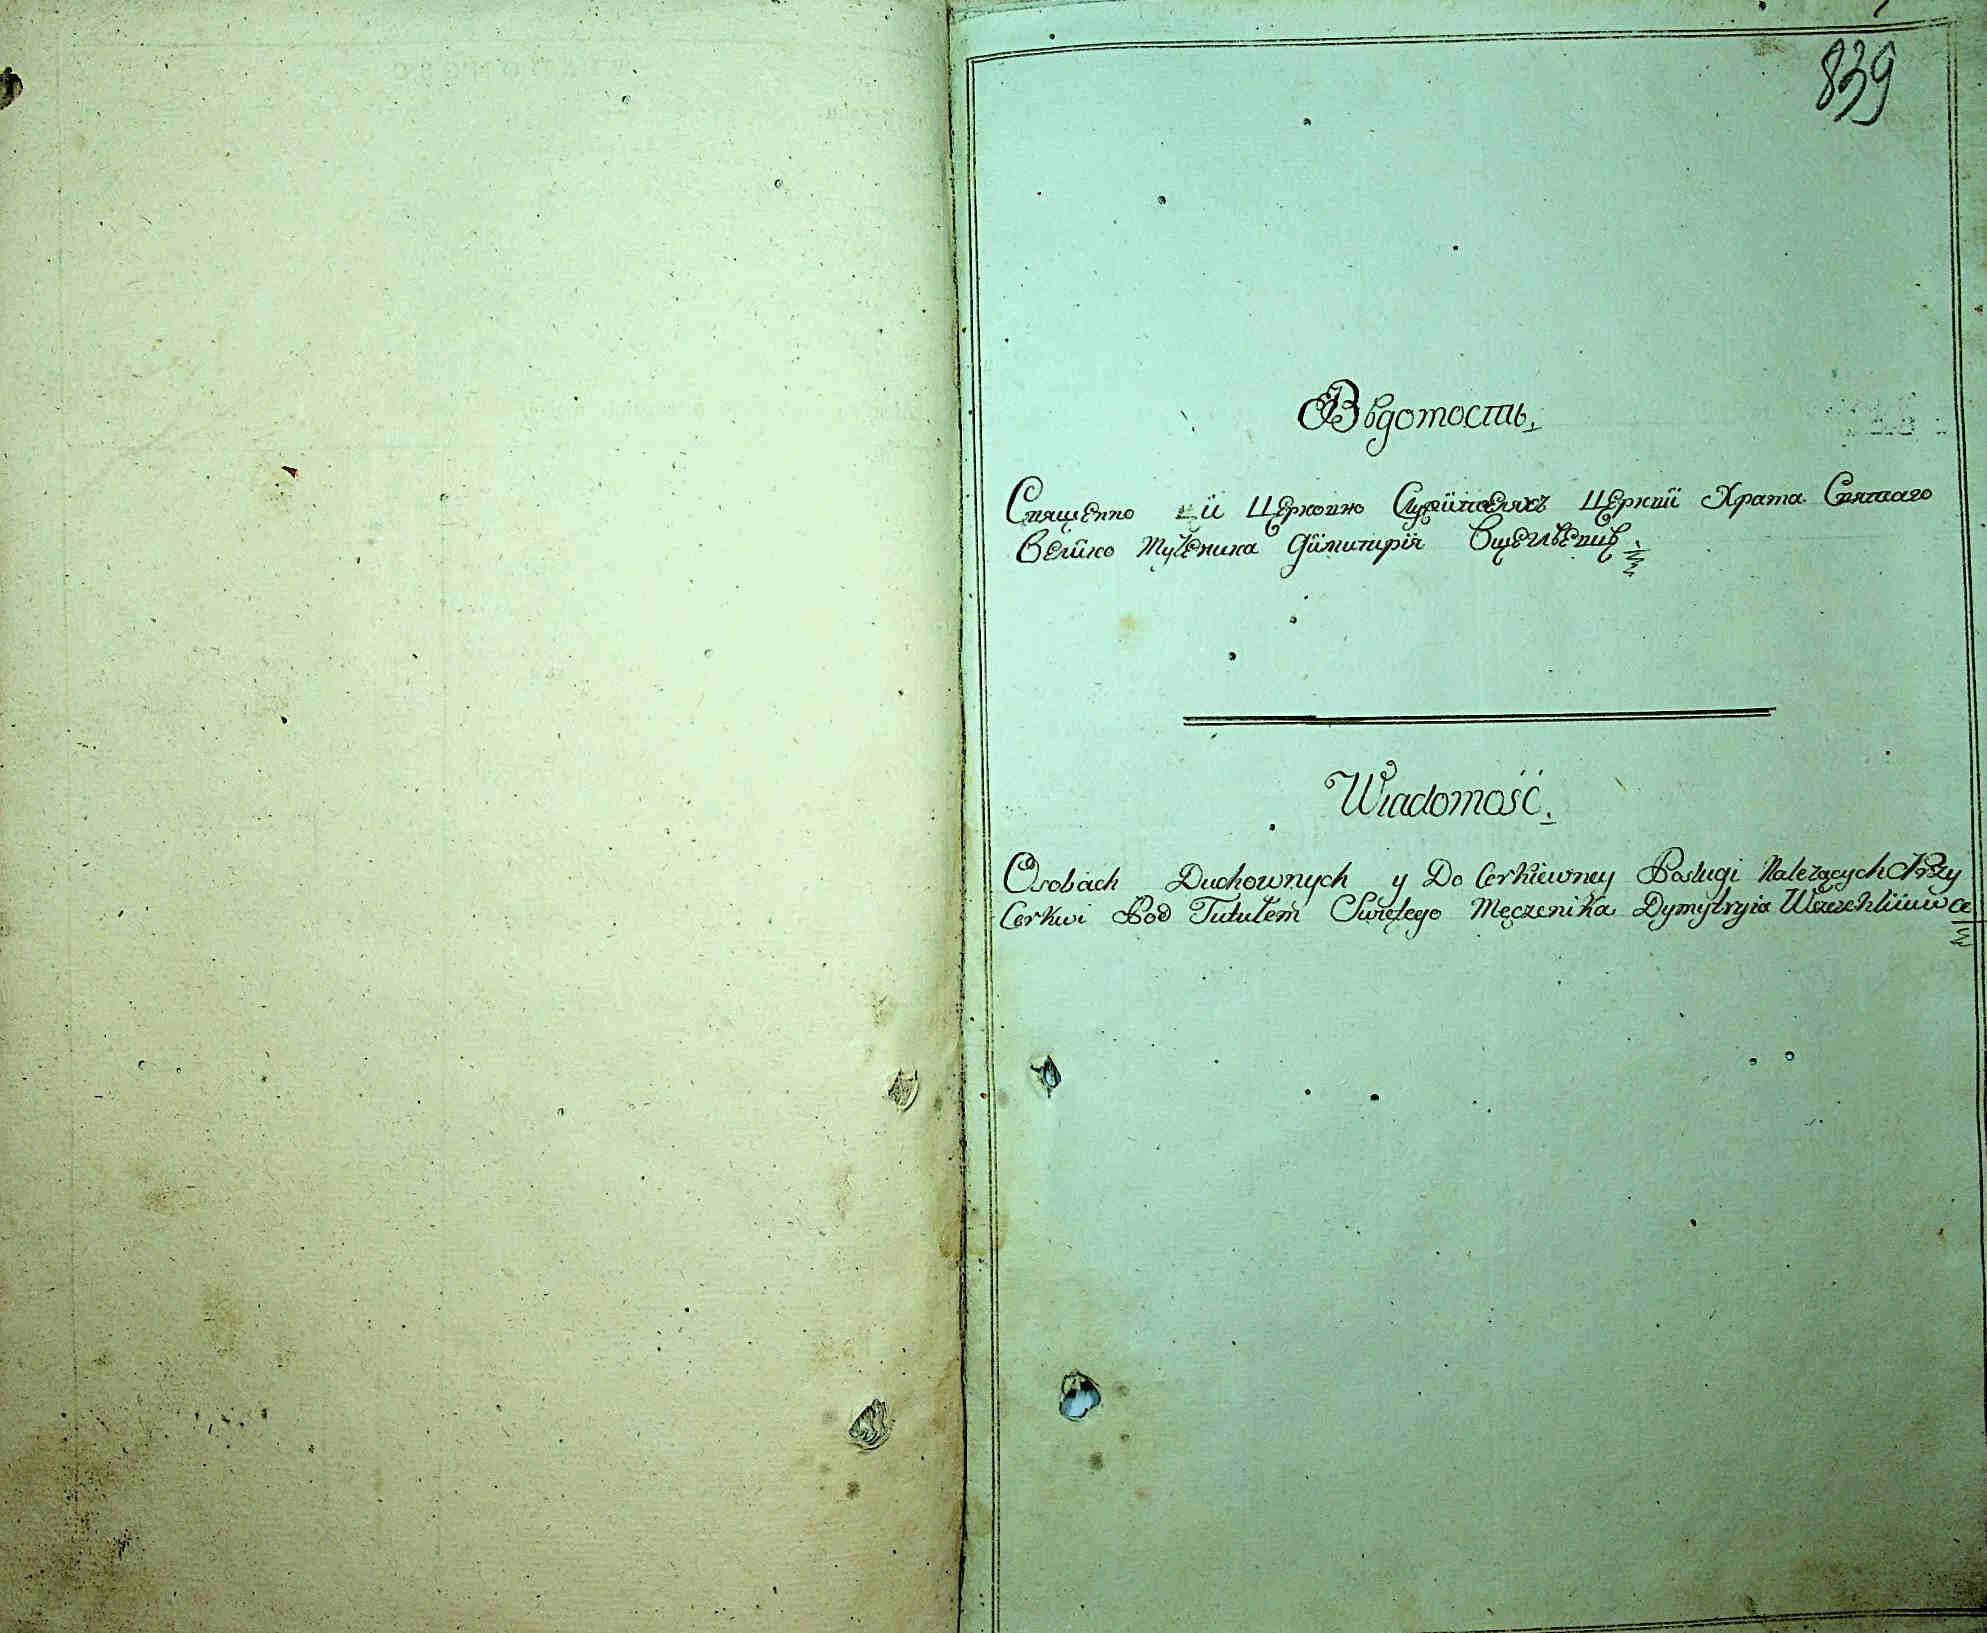 839
Вѣдомость.
Священно ïи Церковно Служителяхъ Церкви Храма Святаго
Велико Мученика Димитрïя
Wiadomość.
Osobach Duchownych y Do Cerkiewney Posługi Należących Przy
Cerkwi Pod Tutułem Swiętego Męczenika Dymytryia